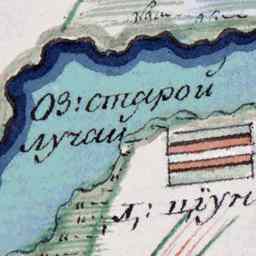 Оз: старой
лучай
л: цїун